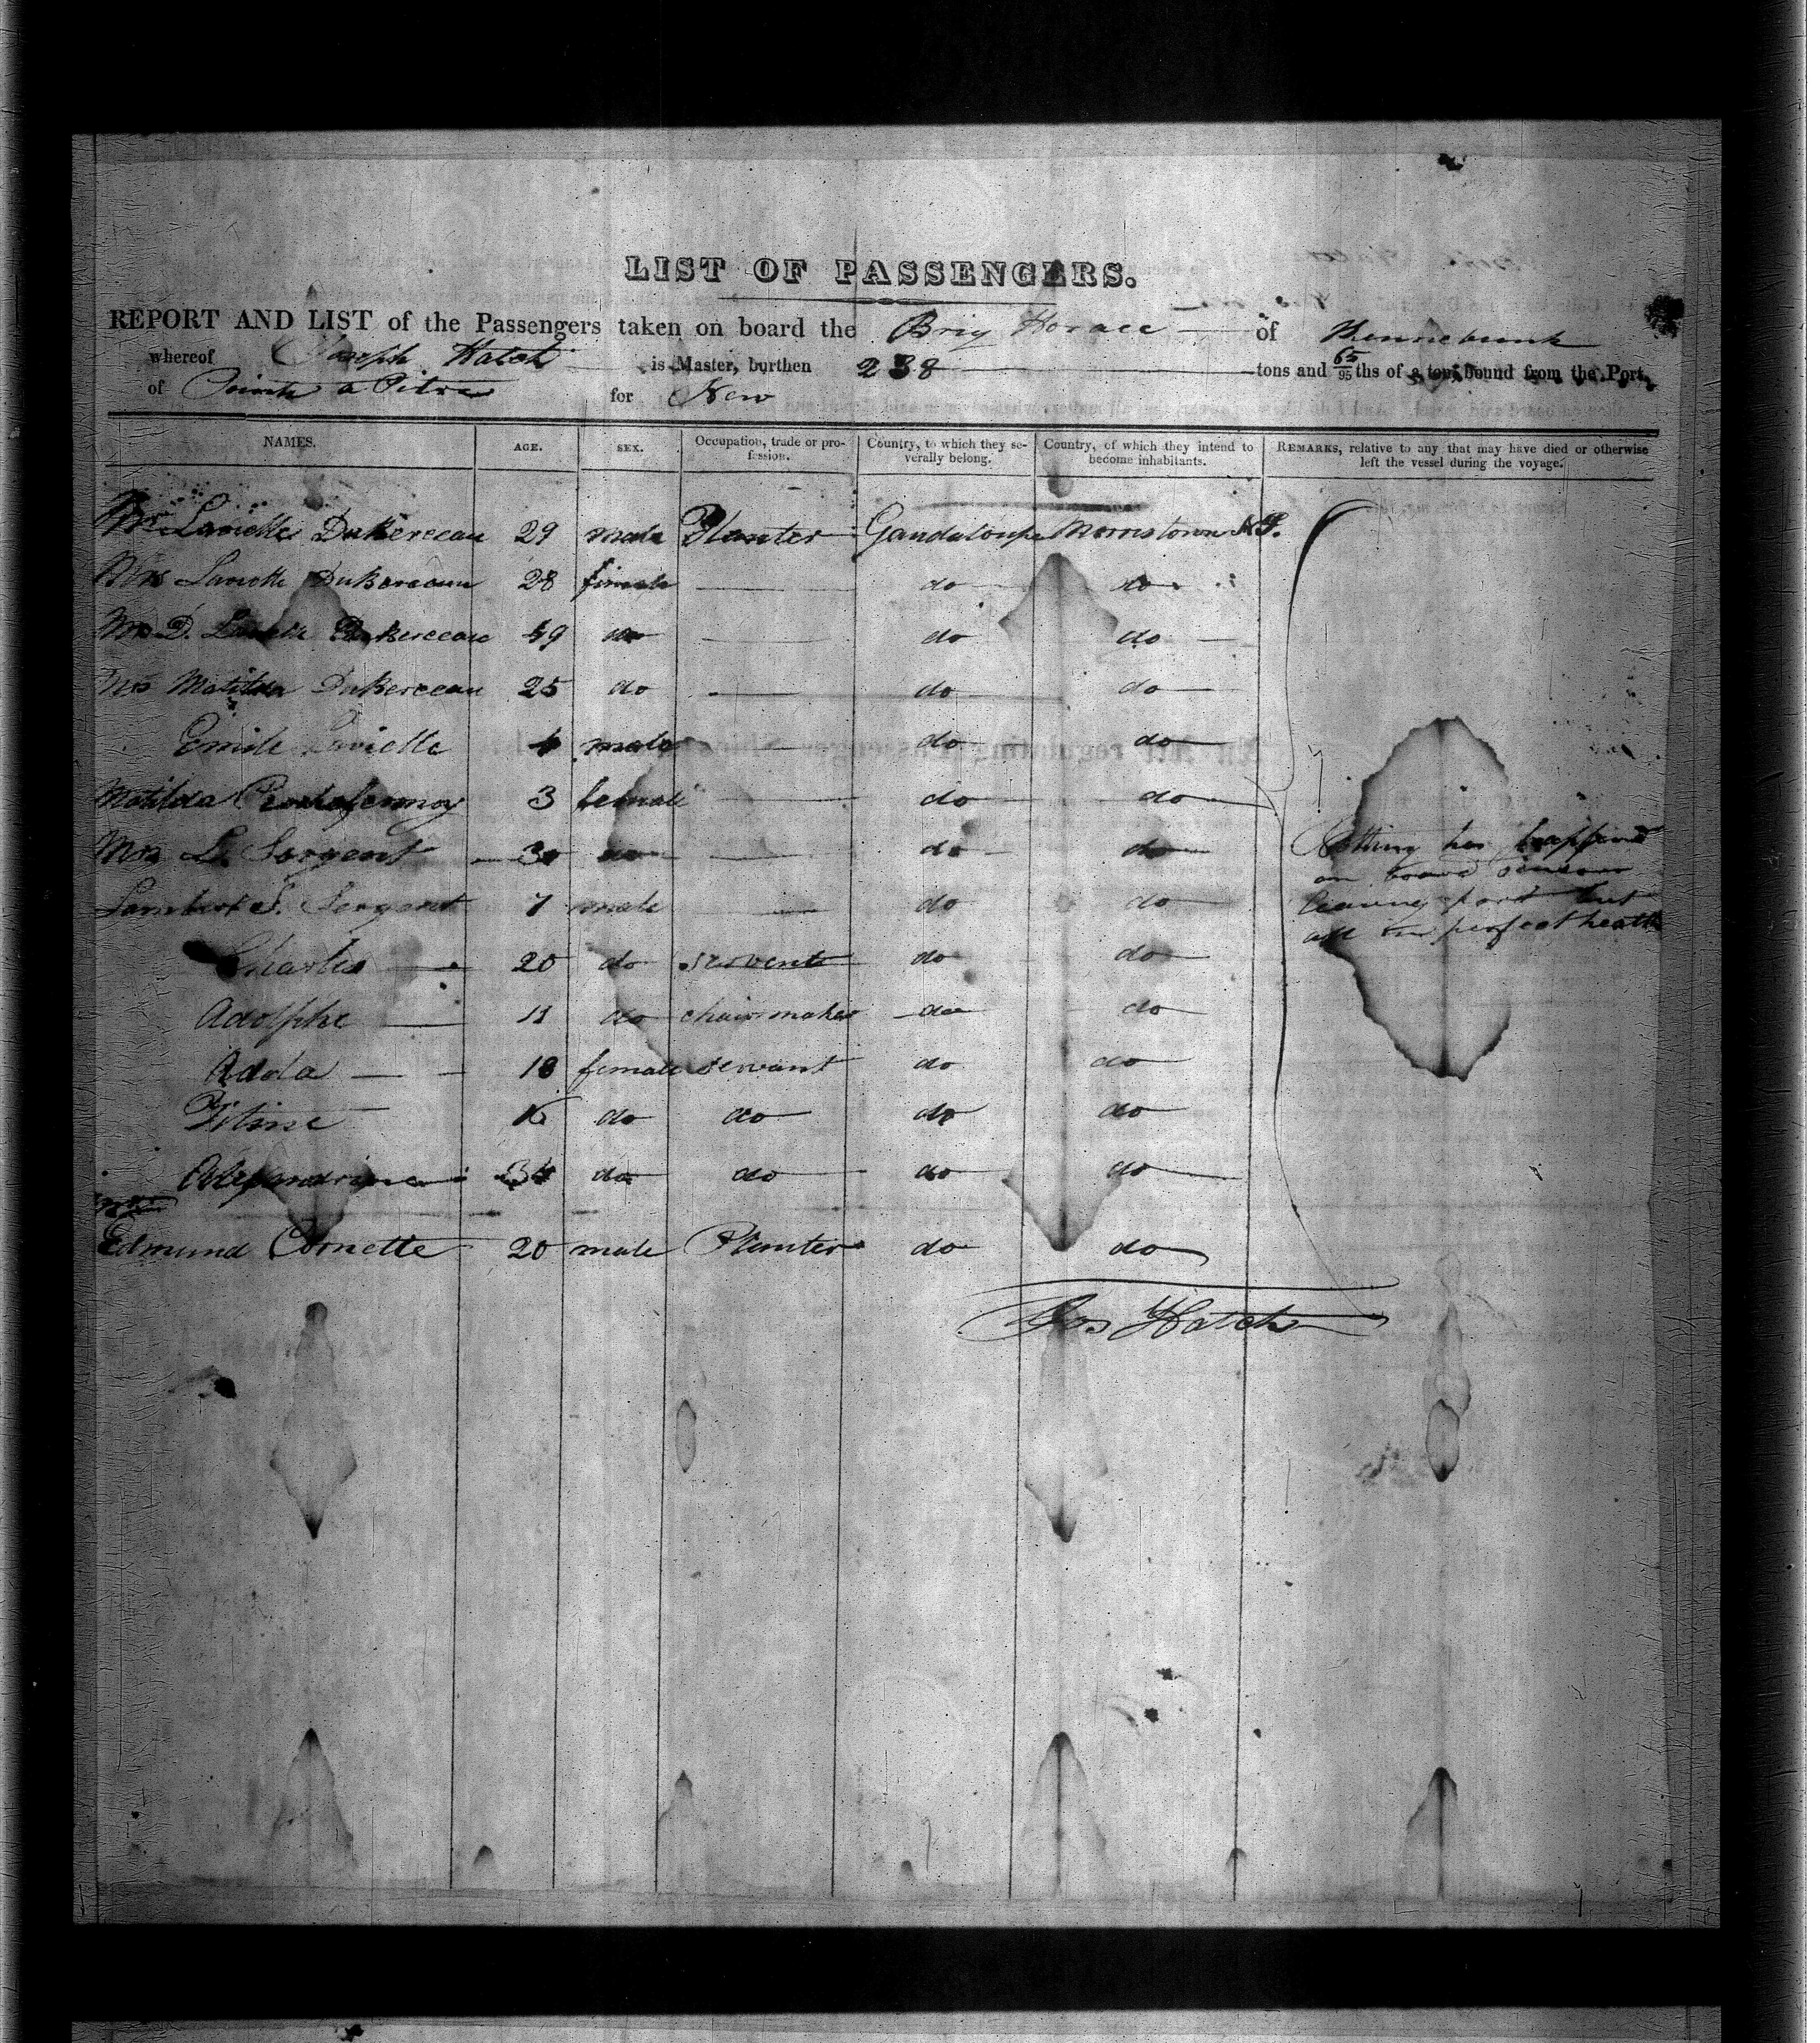 LIST OF PASSENGERS.
REPORT AND LIST of the Passengers taken on board the Brig Horace of Kennebunk
whereof Joseph Hatch is Master, burthen 238 tons and 65/95 ths of a ton, bound from the Port
of Point a Pitre for New
NAMES. AGE. SEX. Occupation, trade or profession. Country, to which they severally belong. Country, of which they intend to become inhabitants. REMARKS, relative to any that may have died or otherwise left the vessel during the voyage.
Mr Lavielle DuBerceau 29 male Planter Gaudaloupe Morristown N.J.
Mrs Lavielle DuBerceau 28 female do do
D. Lavielle DuBerceau 59 do do do
Mrs Matilda DuBerceau 25 do do do
Emile Lavielle male do do
Matilda 3 female do do
Mrs L. Sergent 30 do do do
Lambert S. Sergent 7 male do do
Charles 20 do servent do do
Adolphe 11 do chair maker do do
Adda 18 female servant do do
Titine do do do do
Alexandrine do do do do
Edmund Cornette 20 male Planter do do
Nothing has happend
on board
leaving port but
all in perfect health
Jos Hatch